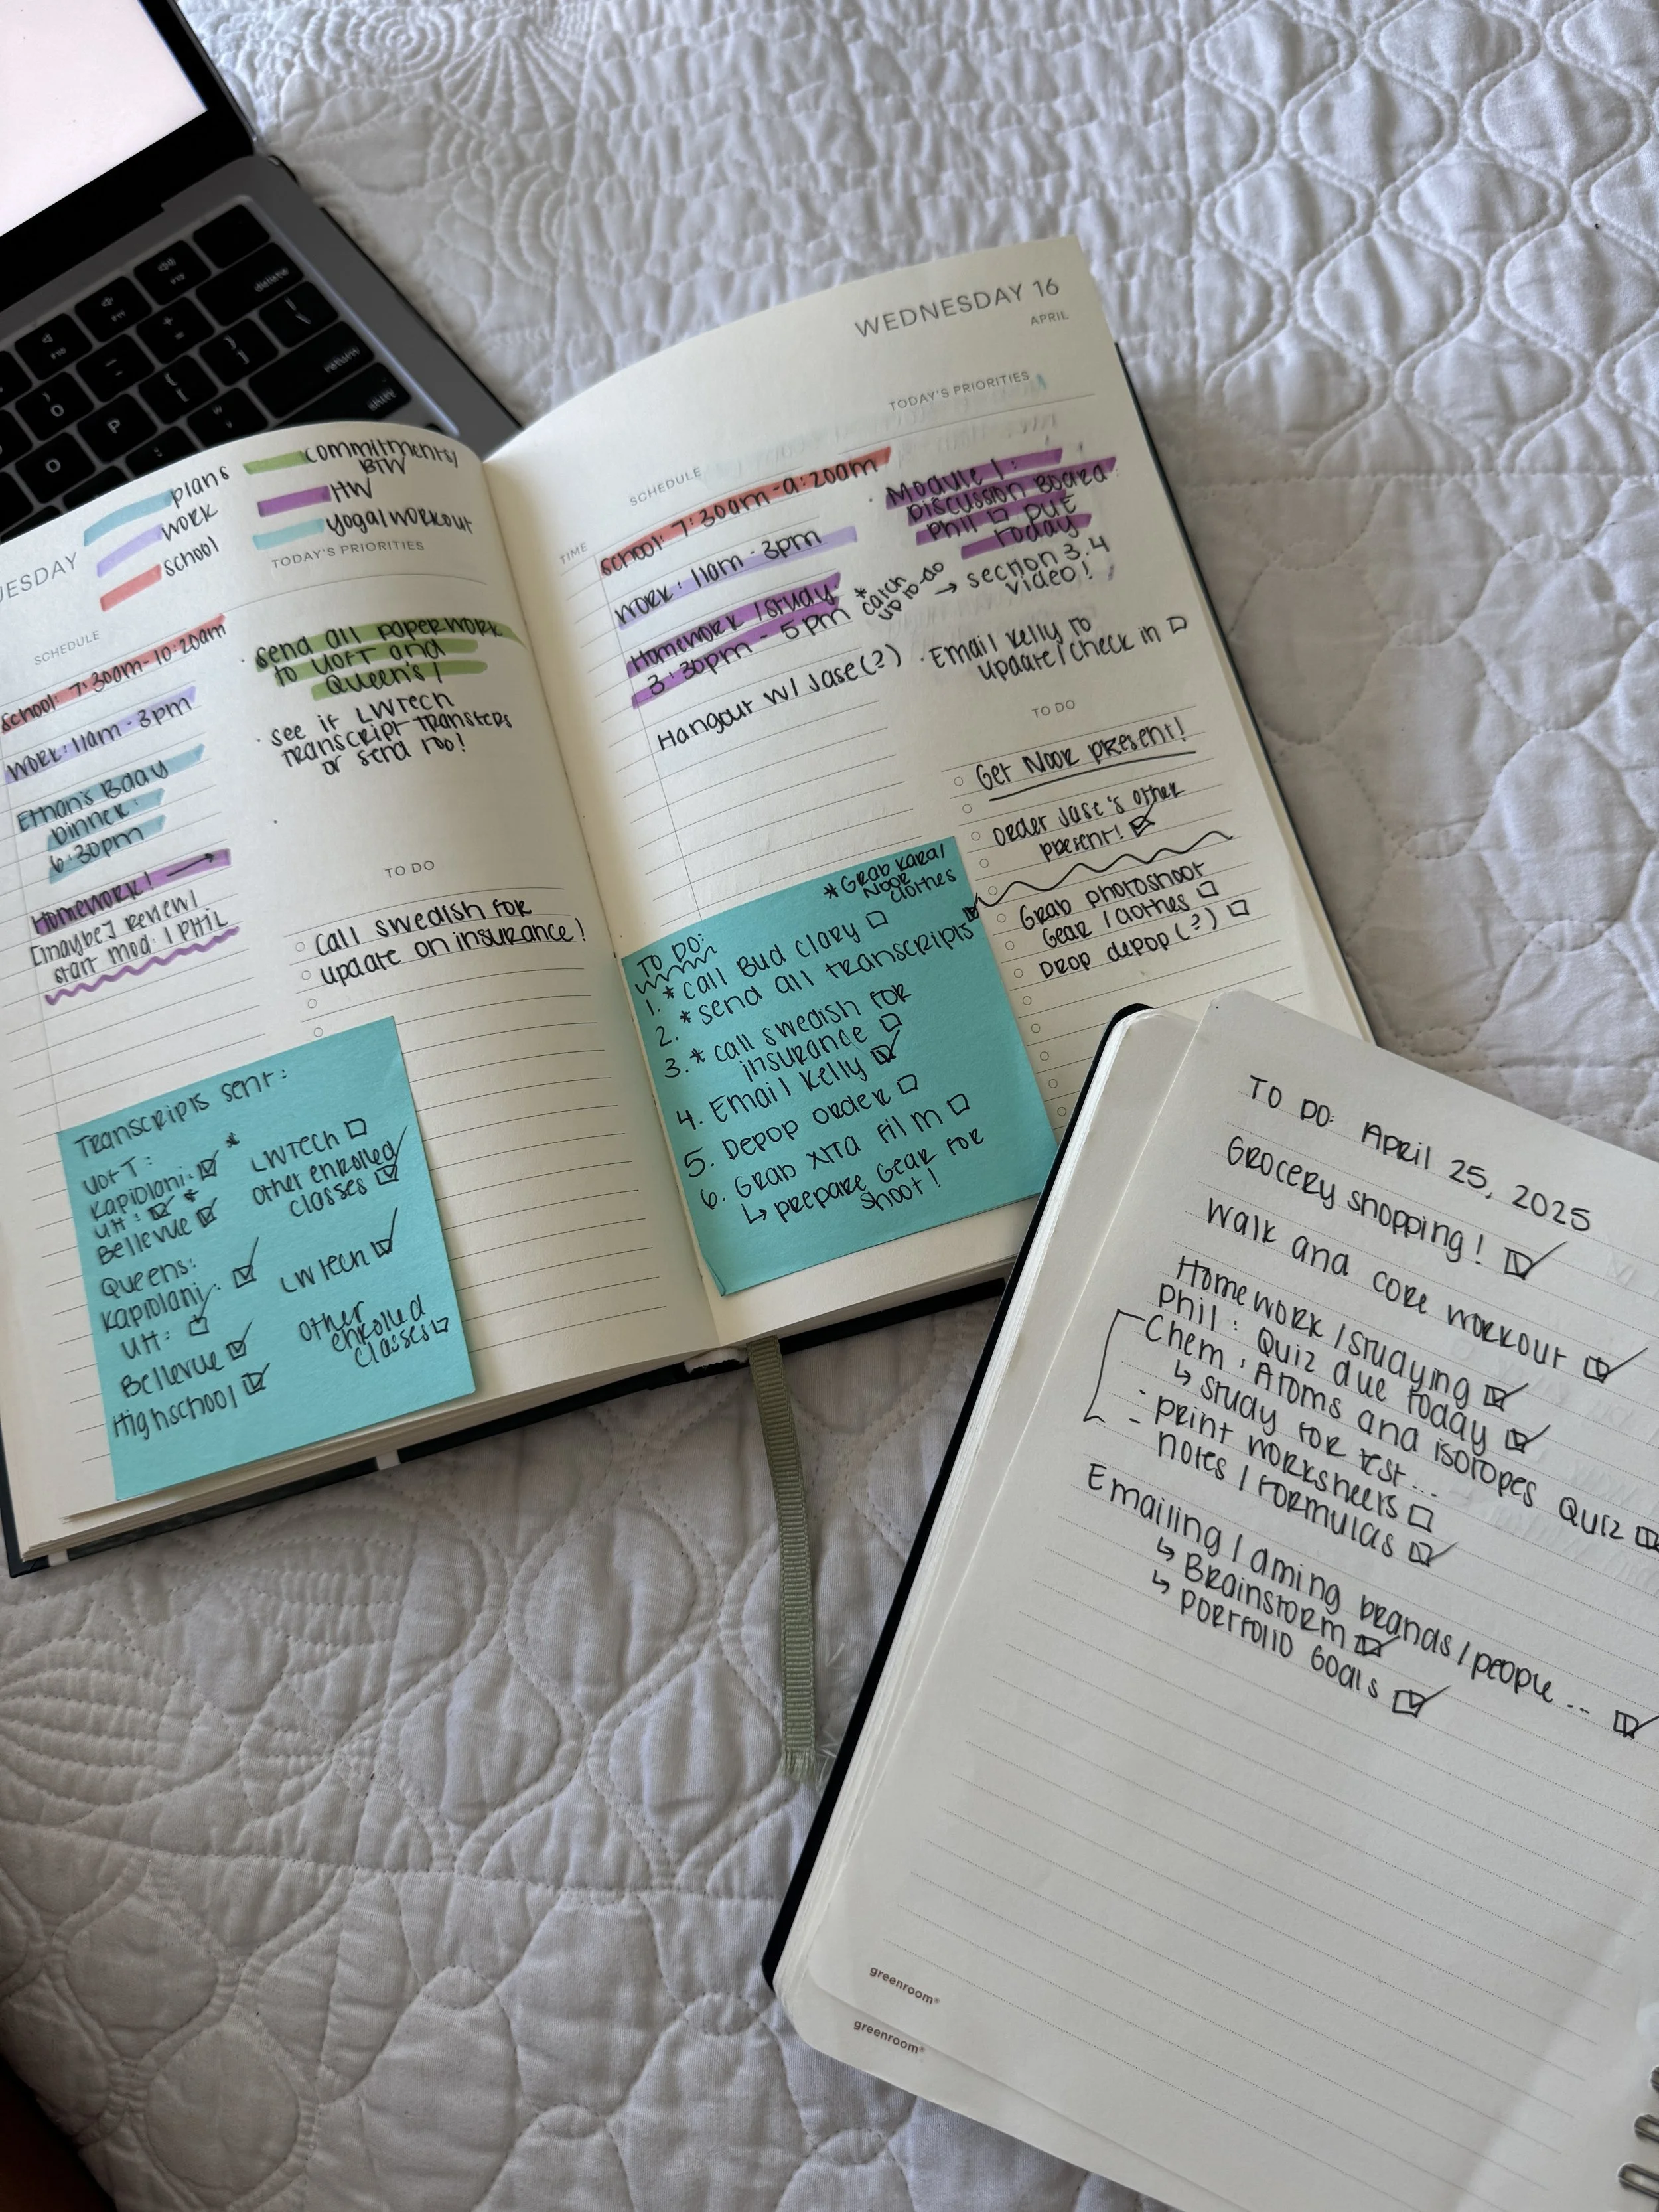 plans
work
school
commitments/
BTW
HW
yoga/workout
UESDAY
TODAY'S PRIORITIES
SCHEDULE
School: 7:30am-10:20am
Work: 11am-3pm
Ethan's Bday
Dinner:
6:30pm
Homework! →
[maybe] review/
start mod. 1 PHIL
send all paperwork
to UofT and
Queen's!
see if LWTech
transcript transfers
or send too!
TO DO
Call Swedish for
update on insurance!
Transcripts sent:
UofT:
Kapiolani: ☑ *
UH: ☑ *
Bellevue ☑
LWTECH ☐
other enrolled
classes ☑
Queens:
Kapiolani: ☑
UH: ☑
Bellevue ☑
Highschool ☑
LWTech ☑
Other
enrolled
classes ☐
WEDNESDAY 16
APRIL
TODAY'S PRIORITIES
SCHEDULE
TIME
School: 7:30am-9:20am
Work: 11am-3pm
Homework/study
3:30pm - 5pm
* catch
up to-do
Hangout w/ Jase(?)
Module 1:
Discussion Board
Phil ☐ DUE
Today
→ section 3.4
video!
Email Kelly to
update/check in ☐
TO DO
Get Noor present!
order Jase's other
present! ☑
Grab photoshoot
Gear/clothes ☐
Drop depop(?) ☐
* Grab Kara/
Noor
clothes
TO DO:
1. * call Bud Clary ☐
2. * send all transcripts ☑
3. * call swedish for
insurance ☐
4. Email Kelly ☑
5. Depop order ☐
6. Grab xtra film ☐
↳ prepare Gear for
shoot!
TO DO: April 25, 2025
Grocery shopping! ☑
Walk and core workout ☑
Homework/studying ☑
Phil: Quiz due today ☑
Chem: Atoms and isotopes Quiz ☑
↳ study for test...
- print worksheets ☐
- notes/formulas ☑
Emailing/aming brands/people... ☑
↳ Brainstorm ☑
↳ portfolio Goals ☑
greenroom®
greenroom®
delete
return
shift
O
P